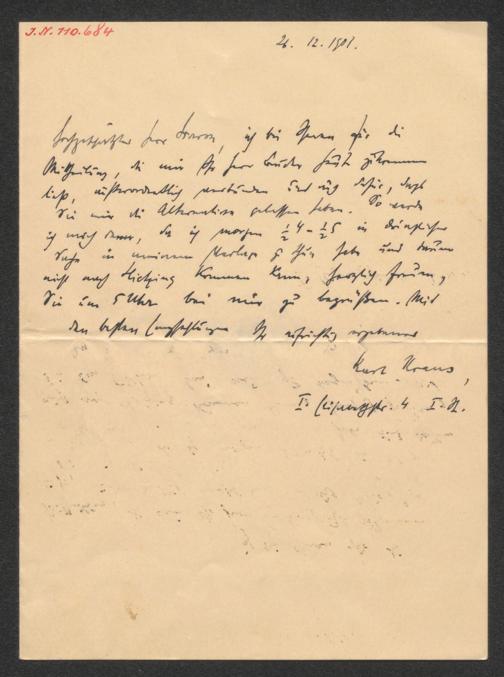 J.N. 110.684
26. 12. 1901.
Hochgeschätzter Herr Baron, ich bin Ihnen für die
Mittheilung, die mir Ihr Herr Bruder heute zukommen
ließ, außerordentlich verbunden und auch dafür, dass
Sie mir die Alternative gelassen haben. So werde
ich mich denn, da ich morgen ½4–½5 in dringlicher
Sache in meinem Verlage zu thun habe und darum
nicht nach Hietzing kommen kann, herzlich freuen,
Sie um 5 Uhr bei mir zu begrüßen. Mit
den besten Empfehlungen Ihr aufrichtig ergebener
Karl Kraus,
I. Elisabethstr. 4 I. St.